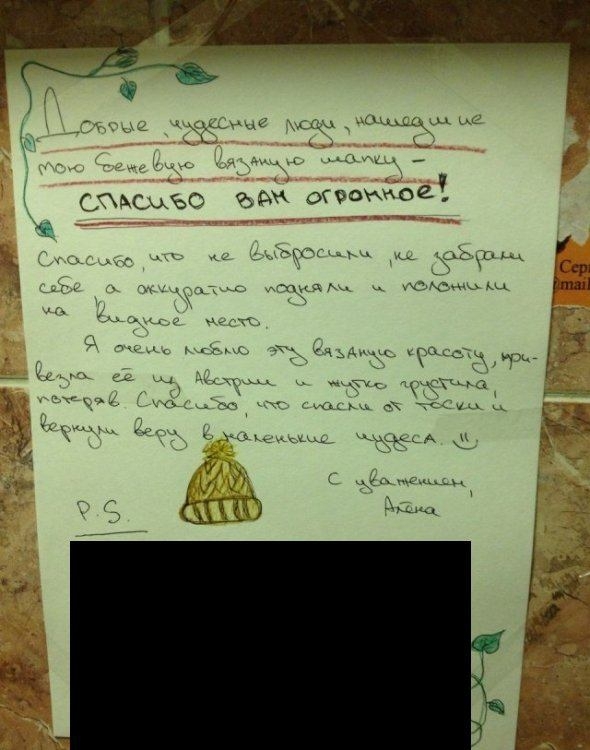 Добрые, чудесные люди, нашедшие
мою бежевую вязаную шапку –
СПАСИБО ВАМ ОГРОМНОЕ!
Спасибо, что не выбросили, не забрали
себе, а аккуратно подняли и положили
на видное место.
Я очень люблю эту вязаную красоту, при-
везла её из Австрии и жутко грустила,
потеряв. Спасибо, что спасли от тоски и
вернули веру в маленькие чудеса.
С уважением,
Алёна
P.S.
Сер
mail